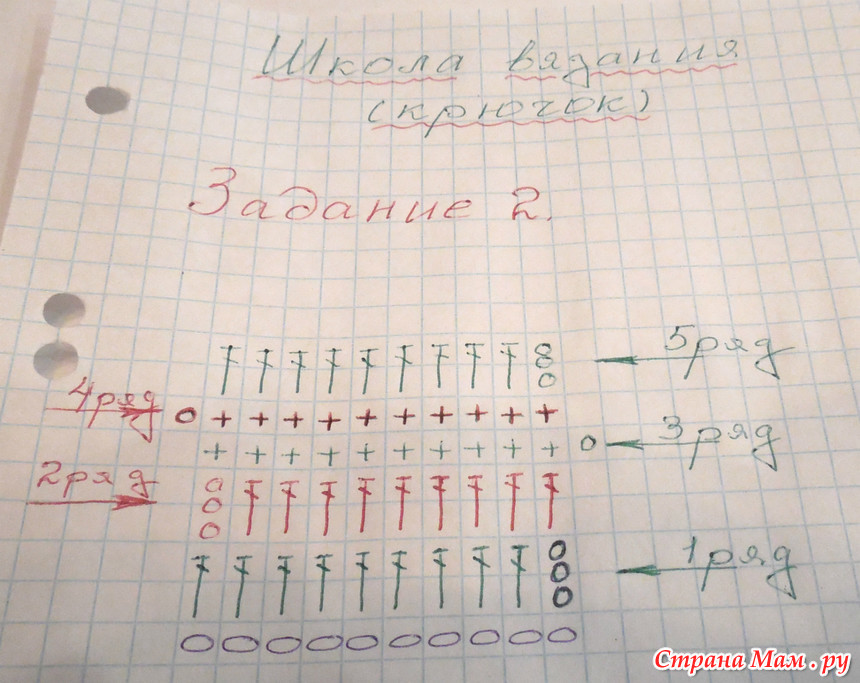 Школа вязания
(крючок)
Задание 2.
5 ряд
4 ряд
3 ряд
2 ряд
1 ряд
Страна Мам.ру